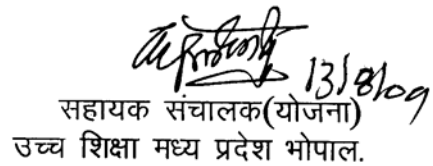 13/8/09
सहायक संचालक(योजना)
उच्च शिक्षा मध्य प्रदेश भोपाल.